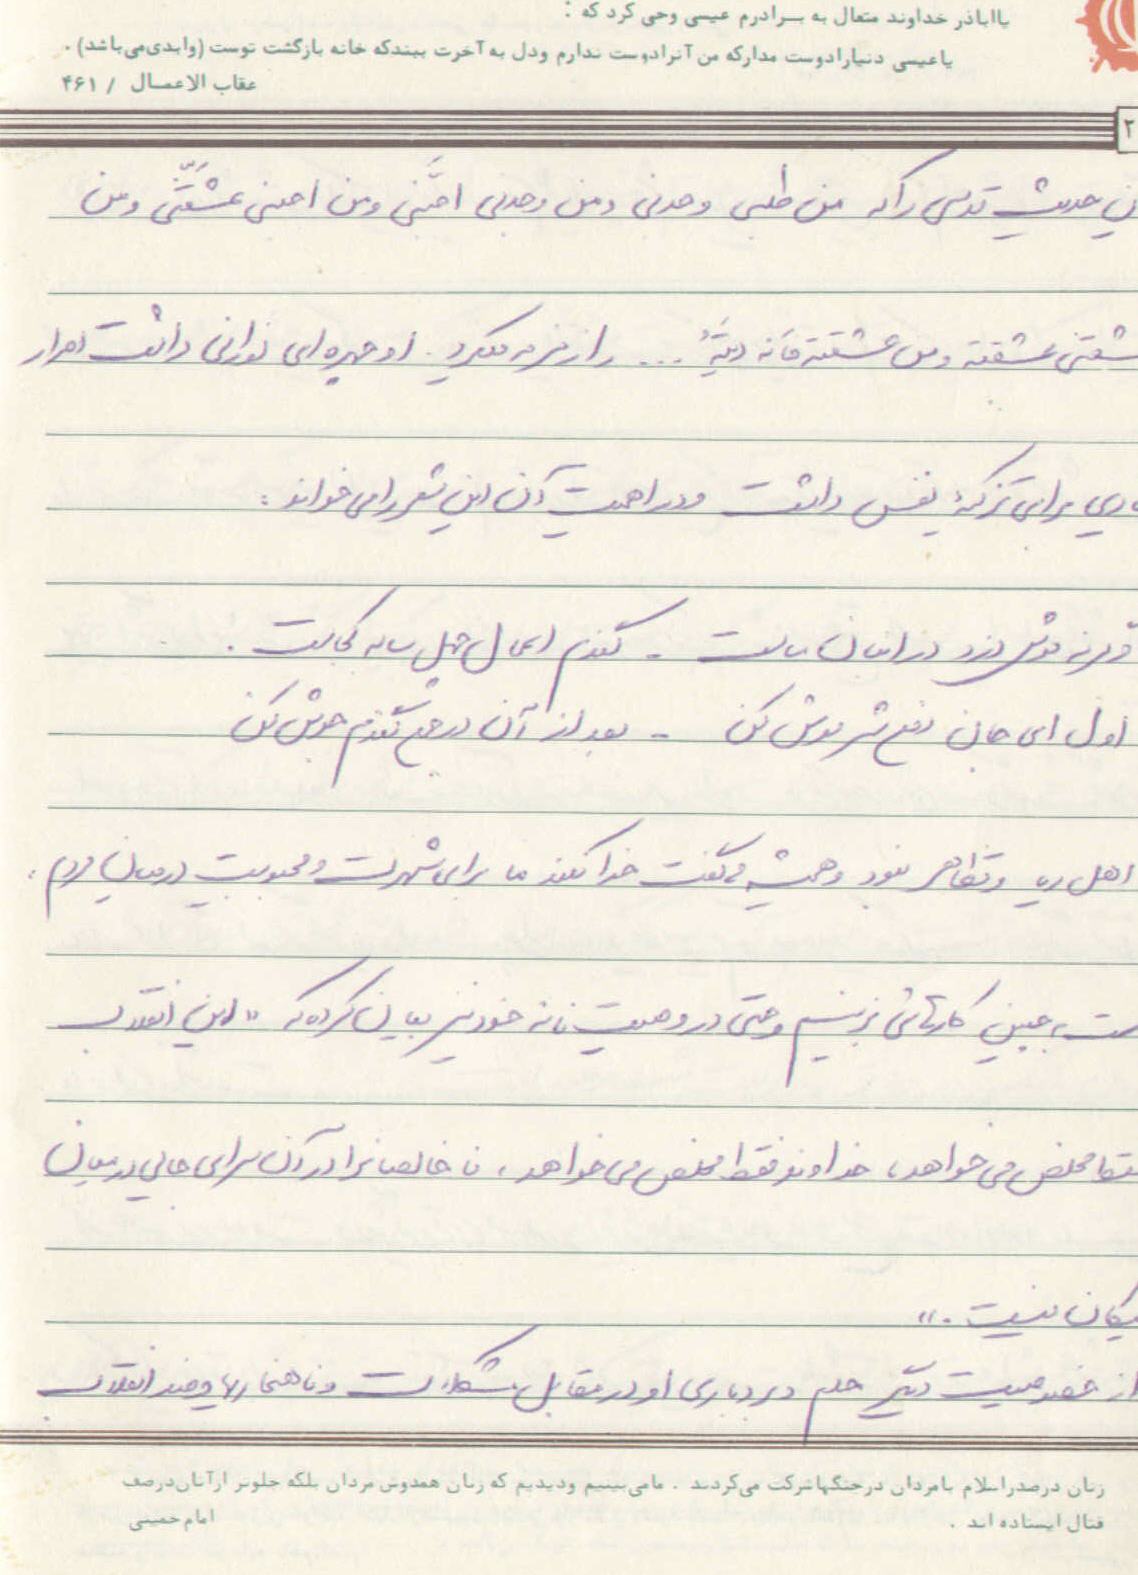 یااباذر خداوند متعال به برادرم عیسی وحی کرد که :
یاعیسی دنیارادوست مدارکه من آنرادوست ندارم ودل به آخرت ببندکه خانه بازگشت توست (وابدی‌می‌باشد) .
عقاب الاعمال / ۴۶۱
۲
حدیث قدسی راکه من طلبنی وجدنی ومن وجدنی احبّنی ومن احبنی عشقنی ومن
عشقنی عشقته ومن عشقته فانه دیتهُ ... را زمزمه میکرد . او چهره‌ای نورانی داشت اصرار
برای تزکیهٔ نفس داشت ودر اهمیت آن این شعر را می‌خواند :
گرنه موش دزد در انبان ماست - گندم اعمال چهل ساله کجاست .
اول ای جان دفع شر موش کن - بعد از آن در جمع گندم جوش کن
اهل ریا وتظاهر نبود وهمیشه میگفت خدا نکند ما برای شهرت ومحبوبیت درمیان مردم ،
دست به چنین کارهائی بزنیم وحتی در وصیت نامه خود نیز بیان کرده که «این انقلاب
فقط مخلص می‌خواهد ، خداوند فقط مخلص می‌خواهد ، ناخالصانرا در آن سرای جایی درمیان
نیکان نیست .»
از خصوصیت دیگر حلم وبردباری او در مقابل مشکلات و ناهنجاریها وضد انقلاب
زنان درصدراسلام بامردان درجنگهاشرکت می‌کردند . مامی‌بینیم ودیدیم که زنان همدوش مردان بلکه جلوتر ازآنان‌درصف
قتال ایستاده اند .
امام خمینی